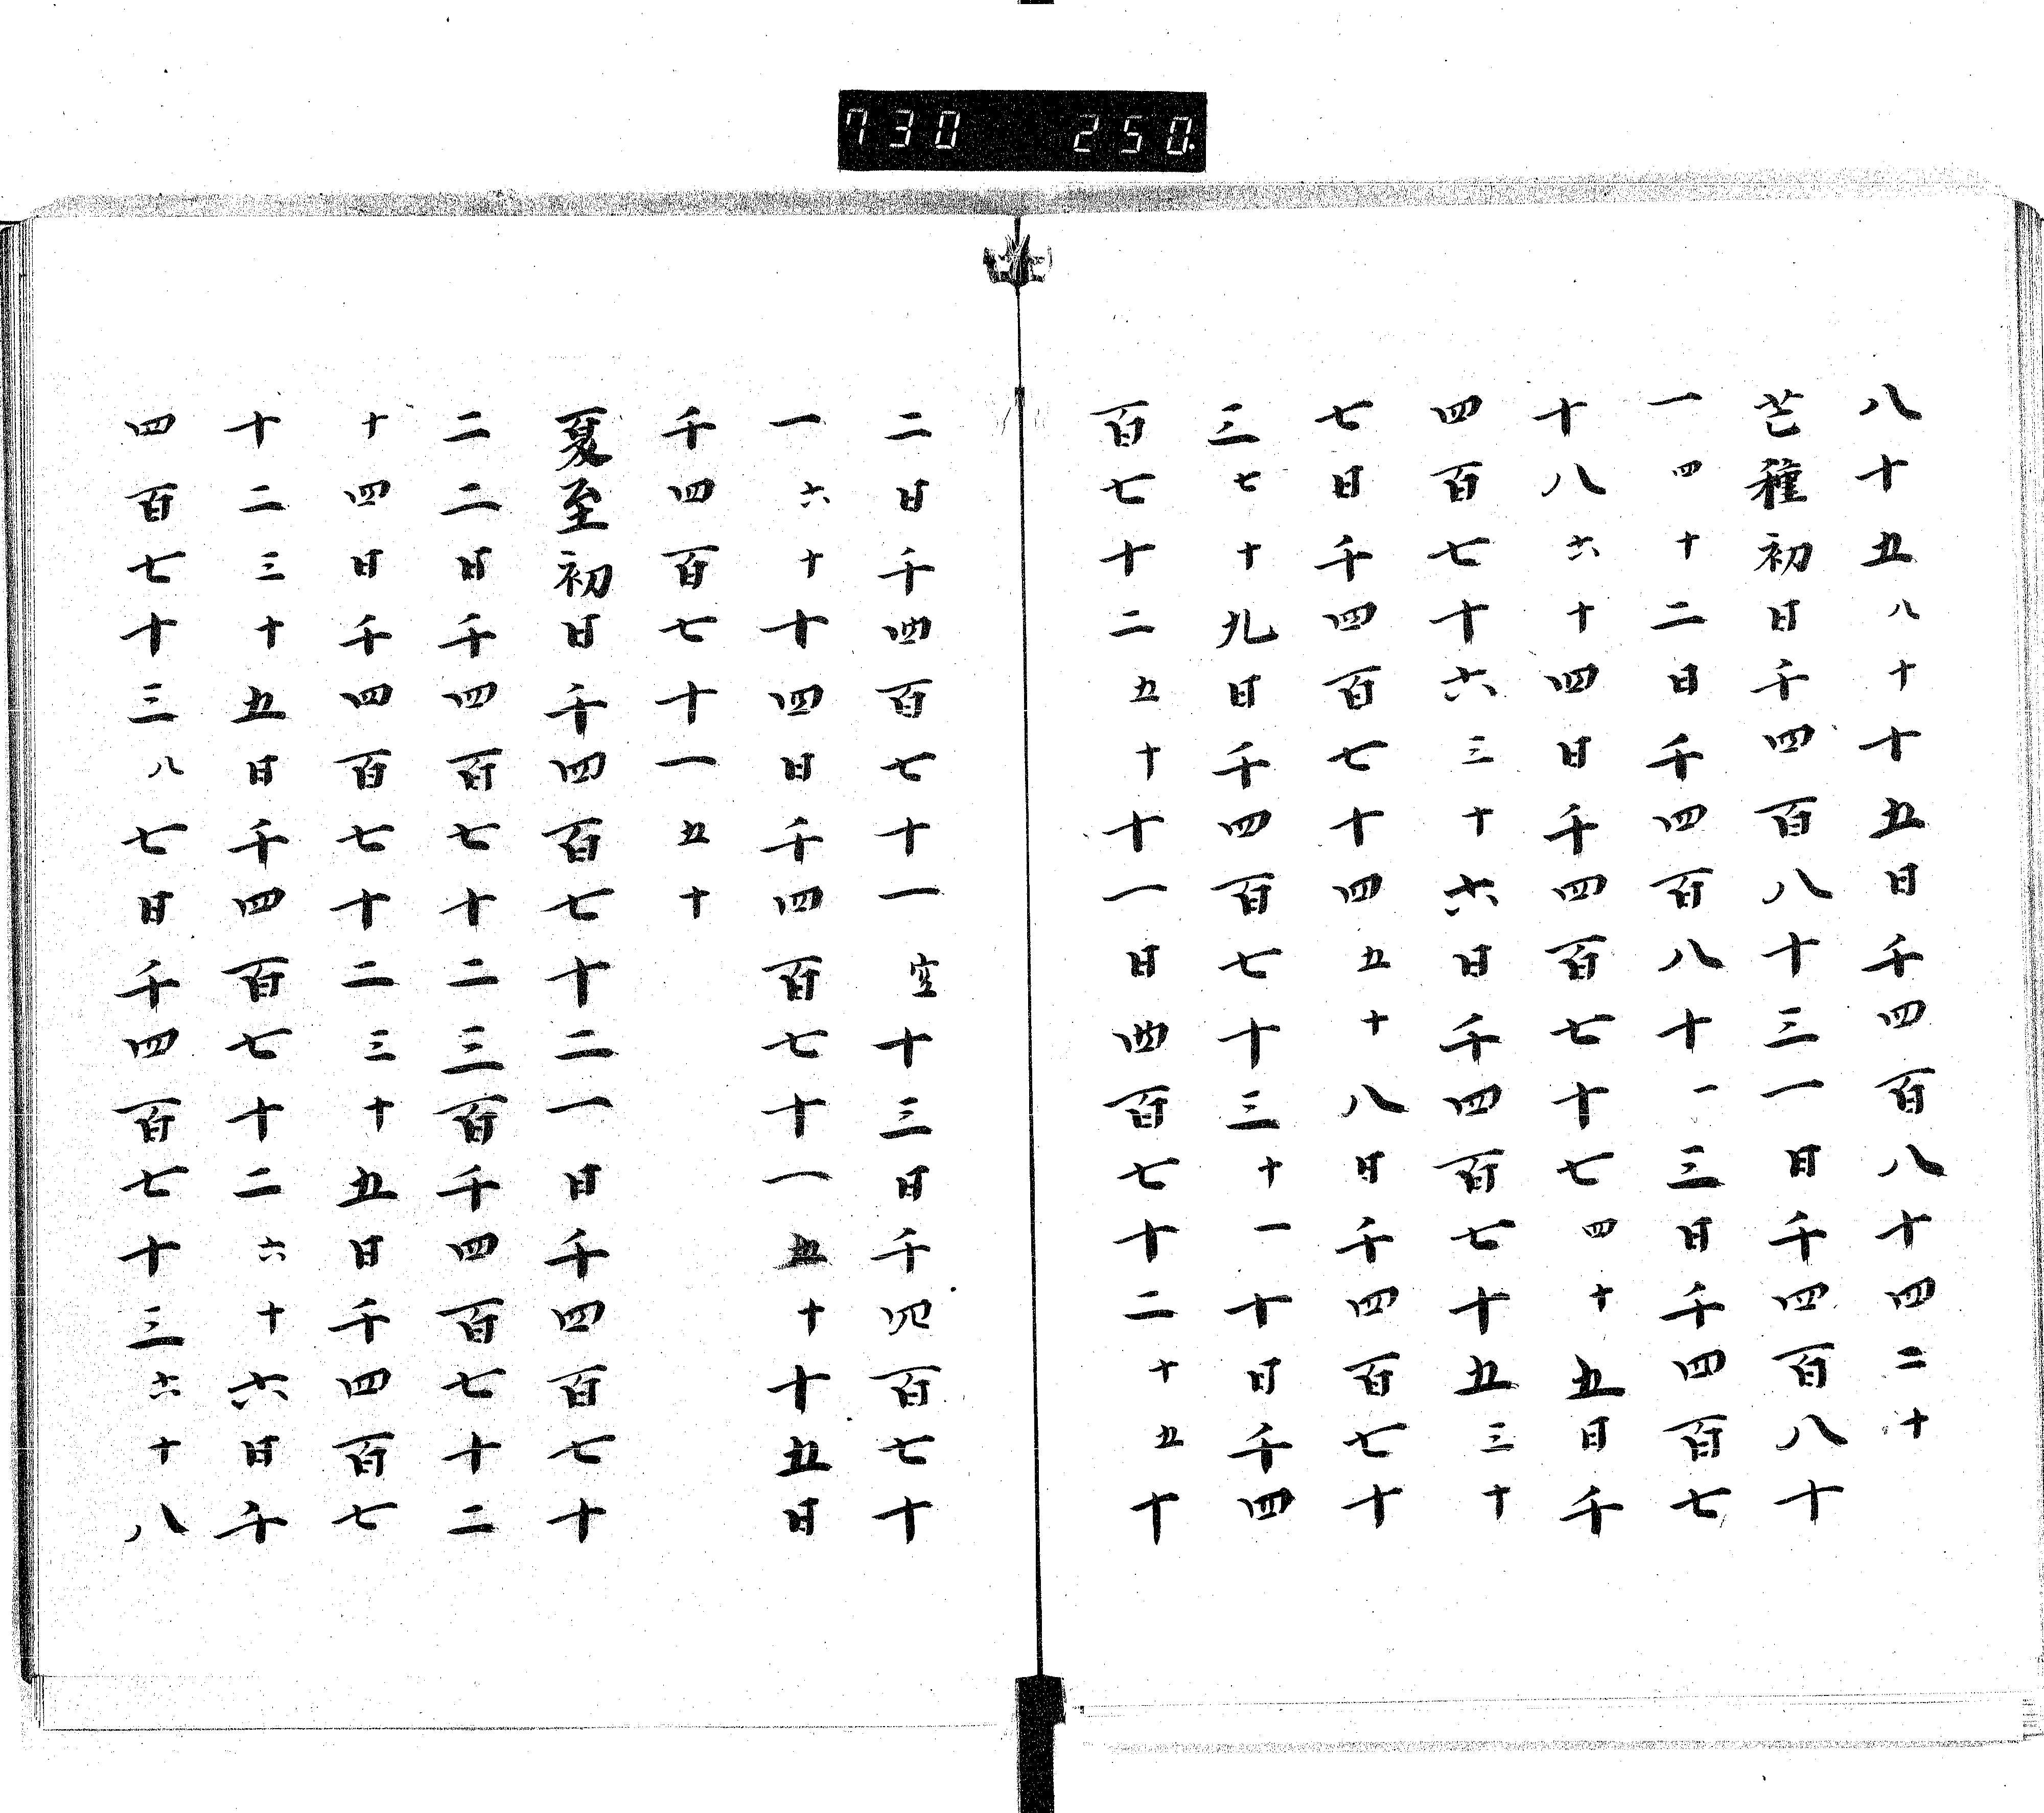 730 250.
八十五八十十五日千四百八十四二十
芒種初日千四百八十三一日千四百八十
一四十二日千四百八十一三日千四百七
十八六十四日千四百七十七四十五日千
四百七十六三十六日千四百七十五三十
七日千四百七十四五十八日千四百七十
三七十九日千四百七十三十一十日千四
百七十二五十十一日四百七十二十五十
二日千四百七十一空十三日千四百七十
一六十十四日千四百七十一五十十五日
千四百七十一五十
夏至初日千四百七十二一日千四百七十
二二日千四百七十二三百千四百七十二
十四日千四百七十二三十五日千四百七
十二三十五日千四百七十二六十六日千
四百七十三八七日千四百七十三六十八